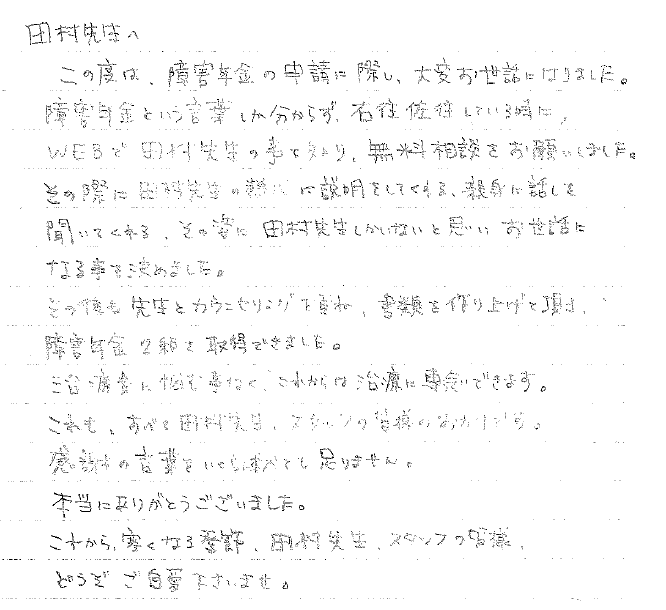 田村先生へ
この度は、障害年金の申請に際し、大変お世話になりました。
障害年金という言葉しか分からず、右往佐往している時に、
WEBで田村先生の事を知り、無料相談をお願いしました。
その際に田村先生の熱心に説明をしてくれる、親身に話しを
聞いてくれる、その姿に田村先生しかいないと思いお世話に
なる事を決めました。
その後も先生とカウンセリングを重ね、書類を作り上げて頂き、
障害年金2級を取得できました。
治療費に悩む事なく、これからは治療に専念できます。
これも、すべて田村先生、スタッフの皆様のおかげです。
感謝の言葉をいくら述べても足りません。
本当にありがとうございました。
これから寒くなる季節、田村先生、スタッフの皆様、
どうぞご自愛下さいませ。